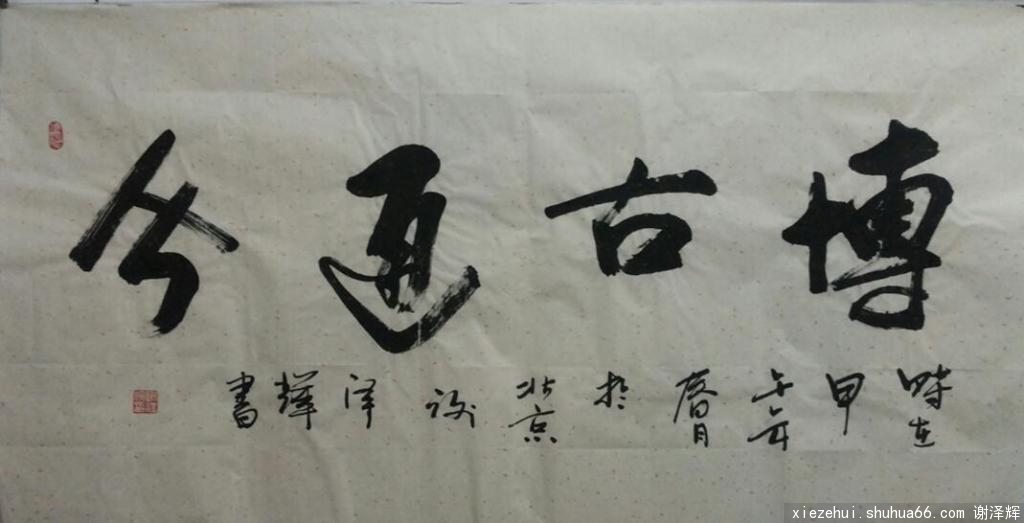 博古通今
時在甲午年春月於北京谢泽辉書
xiezehui.shuhua66.com 谢泽辉